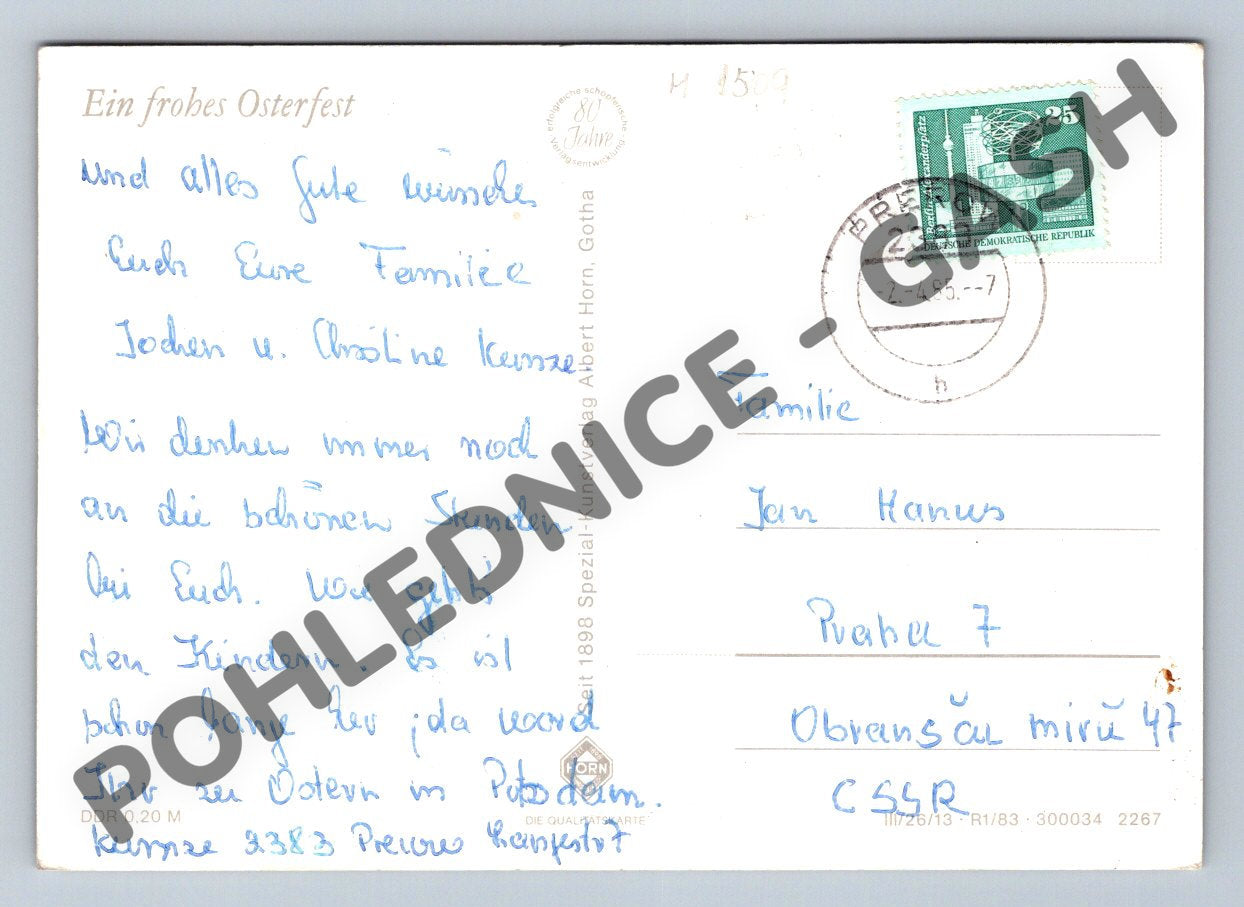 Ein frohes Osterfest
und alles Gute wünschen
Euch Eure Familie
Jochen u. Christine Kunze.
Wir denken immer noch
an die schönen Stunden
bei Euch. Wie geht's
den Kindern. Es ist
schon lange her, da
Ihr zu Ostern in Potsdam.
Kunze 2383 Prerow 7
DDR 0,20 M
80 Jahre
erfolgreiche schöpferische Verlagsentwicklung
Seit 1898 Spezial-Kunstverlag Albert Horn, Gotha
HORN
DIE QUALITÄTSKARTE
M 1509
25
Berlin, Alexanderplatz
DEUTSCHE DEMOKRATISCHE REPUBLIK
PREROW
2383
-2.-4.85.--7
h
Familie
Jan Hanus
Praha 7
Obransču mirů 47
CSSR
III/26/13 · R1/83 · 300034 2267
POHLEDNICE - GASH